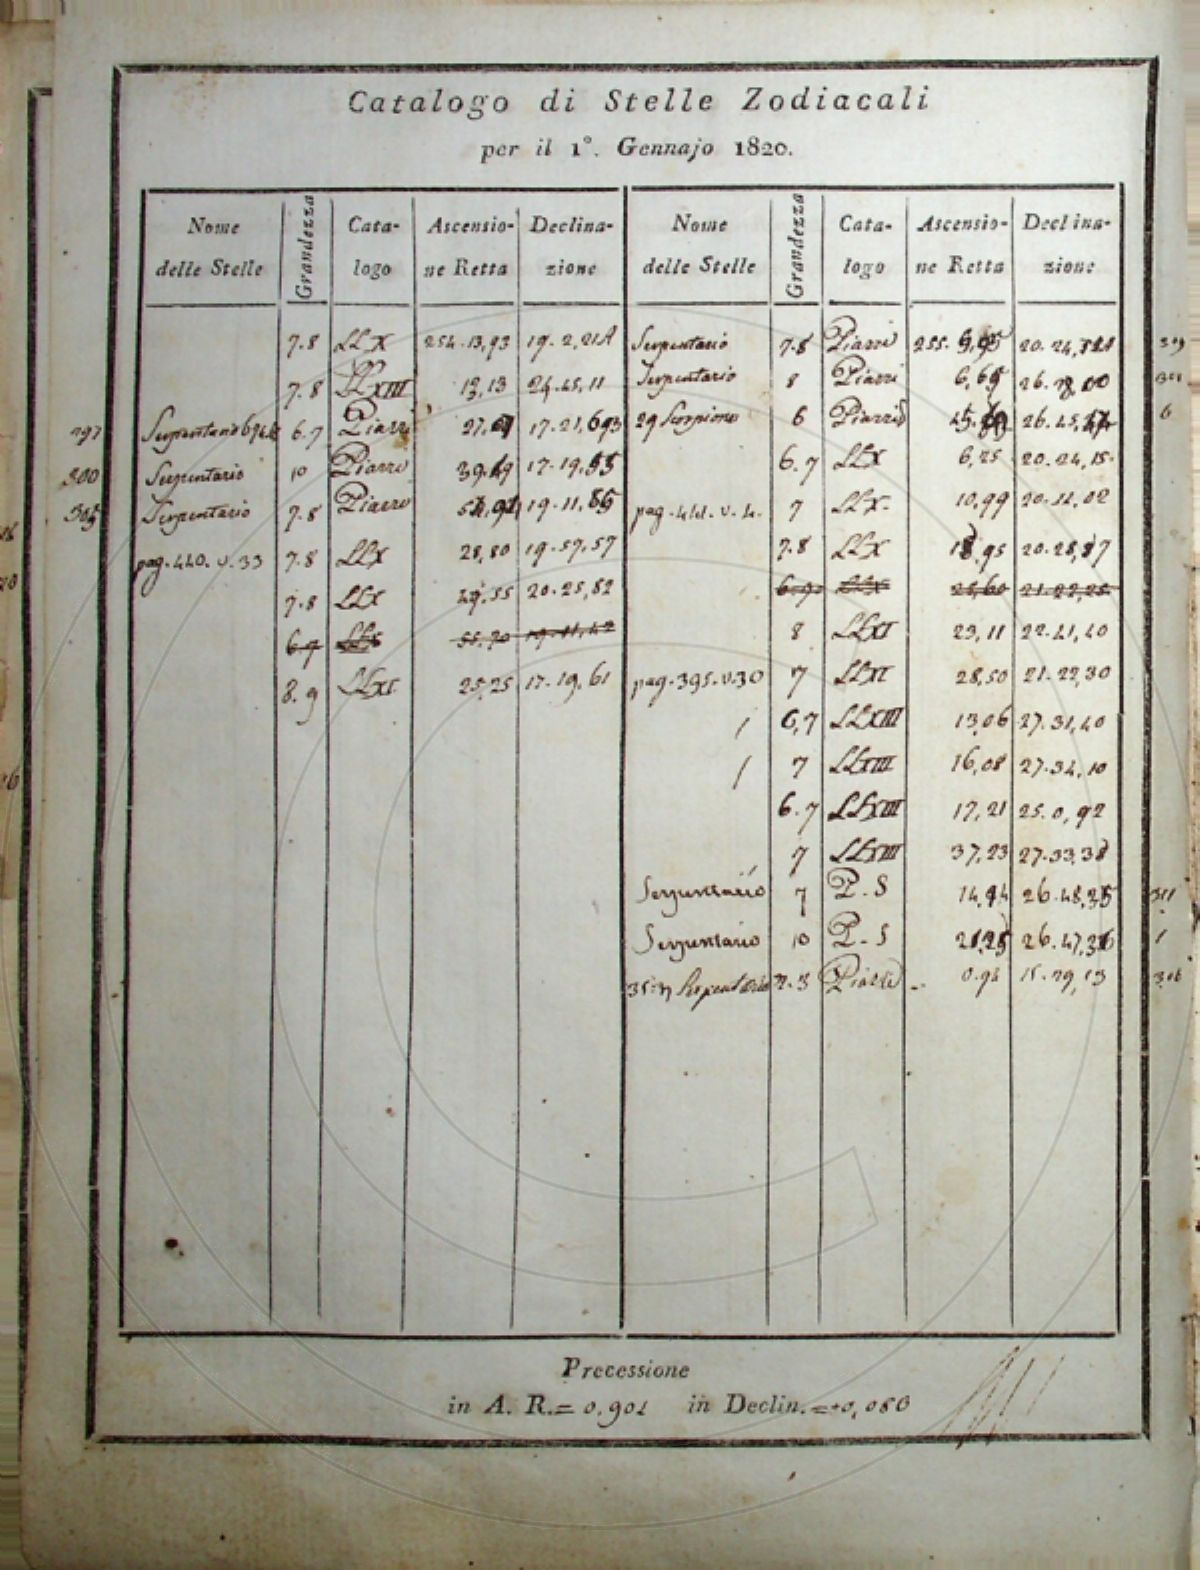 Catalogo di Stelle Zodiacali
per il 1º. Gennajo 1820.
Nome delle Stelle Grandezza Cata-logo Ascensio-ne Retta Declina-zione
7.8 LL X 254.13,93 19.2,21A
7.8 LL XIII 13,13 24.45,11
297 Serpentario 6.7 Piazzi 27, 17.21,
300 Serpentario 10 Piazzi 39, 17.19,55
305 Serpentario 7.8 Piazzi 19.11,
pag. 440. v. 33 7.8 LLX 28,80 19.57,57
7.8 LLX 55 20.25,52
6.7 LLX 55,70 19.11,42
8.9 LLXI 25,25 17.19,61
Nome delle Stelle Grandezza Cata-logo Ascensio-ne Retta Declina-zione
Serpentario 7.8 Piazzi 255. 20.24,
Serpentario 8 Piazzi 6, 26.
29 Scorpione 6 Piazzi 26.45, 6
6.7 LLX 6,25 20.24,15
pag. 441. v. 4. 7 LLX. 10,99 20.12,02
7.8 LLX 18,95 20.28,87
LLX 25,60 21.22,25
8 LLXI 23,11 22.41,40
pag. 395. v. 30 7 LLXI 28,50 21.22,30
/ 6,7 LLXIII 13,06 27.31,40
/ 7 LLXIII 16,08 27.34,10
6.7 LLXIII 17,21 25.0,92
7 LLXIII 37,23 27.33,38
Serpentario 7 P. S 14, 26.48,35 311
Serpentario 10 P. S 26.47,
35 η Serpentario 2.3 Piazzi 0.94 15.29,13 306
Precessione
in A. R.= 0,901 in Declin.=+0,086